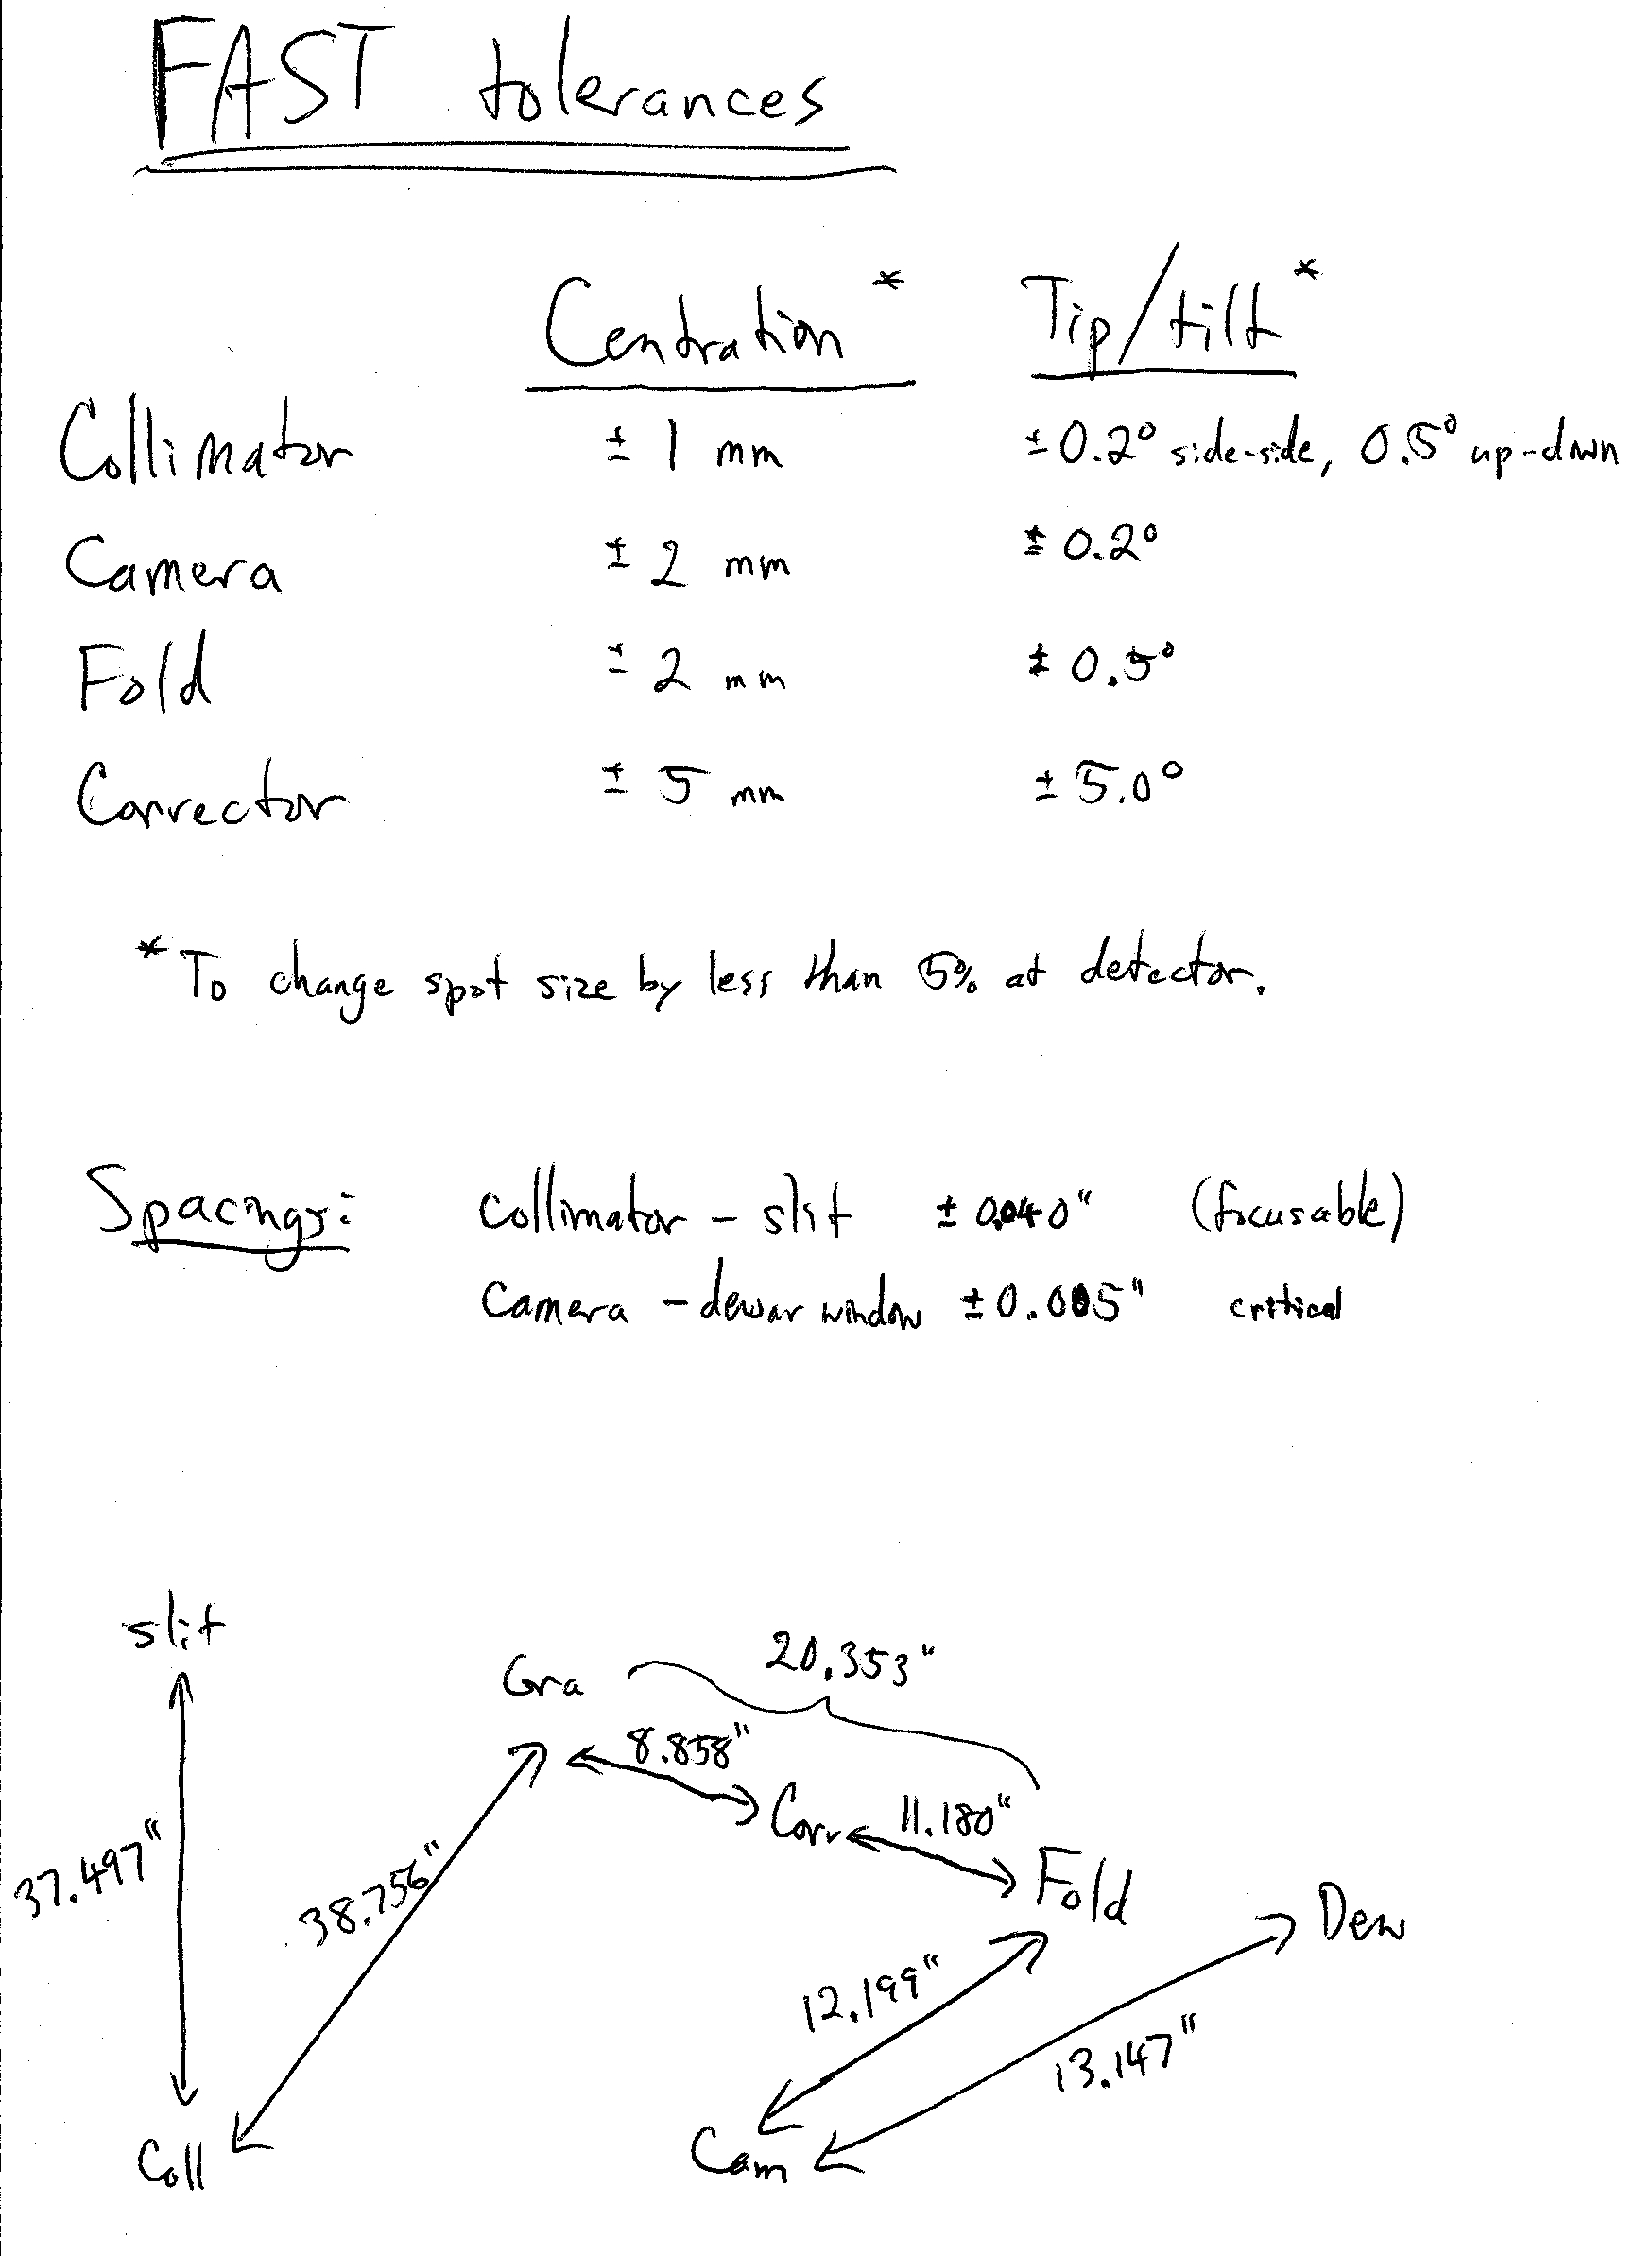 FAST tolerances
Centration * Tip/tilt *
Collimator ± 1 mm ± 0.2° side-side, 0.5° up-down
Camera ± 2 mm ± 0.2°
Fold ± 2 mm ± 0.5°
Corrector ± 5 mm ± 5.0°
* To change spot size by less than 5% at detector.
Spacings: collimator - slit ± 0.040" (focusable)
camera - dewar window ± 0.005" critical
slit
20.353"
Gra
8.858"
Corr 11.180"
37.497"
38.756"
Fold
Dew
12.199"
13.147"
Coll
Cam